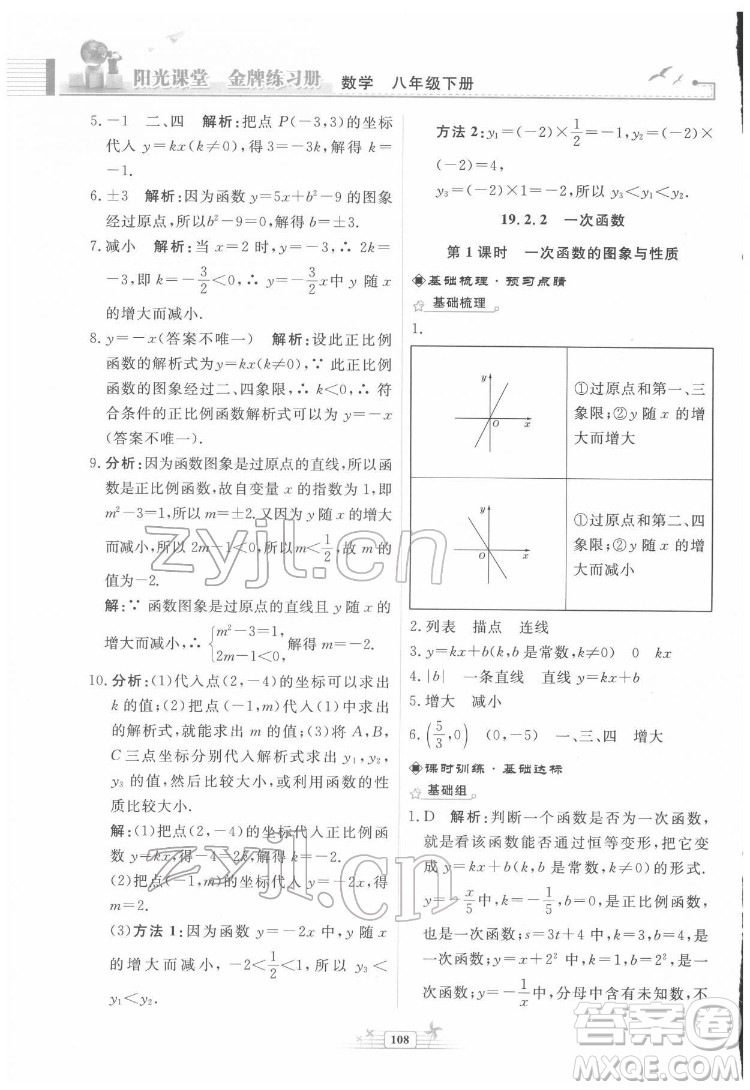 阳光课堂 金牌练习册 数学 八年级下册
5. -1 二、四 解析:把点 P(-3,3)的坐标
代入 y=kx(k≠0),得 3=-3k,解得 k=
-1.
6. ±3 解析:因为函数 y=5x+b²-9 的图象
经过原点,所以b²-9=0,解得 b=±3.
7. 减小 解析:当 x=2 时,y=-3,∴ 2k=
-3,即 k=-3/2<0,∴ y=-3/2x中 y 随 x
的增大而减小.
8. y=-x(答案不唯一) 解析:设此正比例
函数的解析式为y=kx(k≠0),∵ 此正比例
函数的图象经过二、四象限,∴ k<0,∴ 符
合条件的正比例函数解析式可以为 y=-x
(答案不唯一).
9. 分析:因为函数图象是过原点的直线,所以函
数是正比例函数,故自变量 x 的指数为 1,即
m²-3=1,所以 m=±2.又因为 y 随 x 的增大
而减小,所以 2m-1<0,所以 m<1/2,故 m的
值为-2.
解:∵ 函数图象是过原点的直线且 y 随 x 的
增大而减小,∴{m²-3=1, 2m-1<0, 解得 m=-2.
10. 分析:(1)代入点(2,-4)的坐标可以求出
k 的值;(2)把点(-1,m)代入(1)中求出
的解析式,就能求出 m 的值;(3)将 A,B,
C 三点坐标分别代入解析式求出 y₁,y₂,
y₃ 的值,然后比较大小,或根据函数的性
质比较大小.
解:(1)把点(2,-4)的坐标代入正比例函
数 y=kx,得-4=2k,解得 k=-2.
(2)把点(-1,m)的坐标代入 y=-2x,得
m=2.
(3)方法 1:因为函数 y=-2x 中,y 随 x
的增大而减小,-2<1/2<1,所以 y₃<
y₁<y₂.
方法 2:y₁=(-2)×1/2=-1,y₂=(-2)×
(-2)=4,
y₃=(-2)×1=-2,所以 y₃<y₁<y₂.
19.2.2 一次函数
第 1 课时 一次函数的图象与性质
基础梳理·预习点睛
基础梳理
1.
y
O x
①过原点和第一、三
象限;②y 随 x 的增
大而增大
y
O x
①过原点和第二、四
象限;②y 随 x 的增
大而减小
2. 列表 描点 连线
3. y=kx+b(k,b 是常数,k≠0) 0 kx
4. |b| 一条直线 直线 y=kx+b
5. 增大 减小
6. (5/3,0) (0,-5) 一、三、四 增大
课时训练·基础达标
基础组
1. D 解析:判断一个函数是否为一次函数,
就是看该函数能否通过恒等变形,把它变
成 y=kx+b(k,b 是常数,k≠0)的形式.
A 中,y=-x/5中,k=-1/5,是正比例函数,
也是一次函数;s=3t+4 中,k=3,b=4,是
一次函数;y=x+2² 中,k=1,b=2²,是
一次函数;y=-1/x中,分母中含有未知数,不
108
zyjl.cn
zyjl.cn
答案圈
MXQE.COM